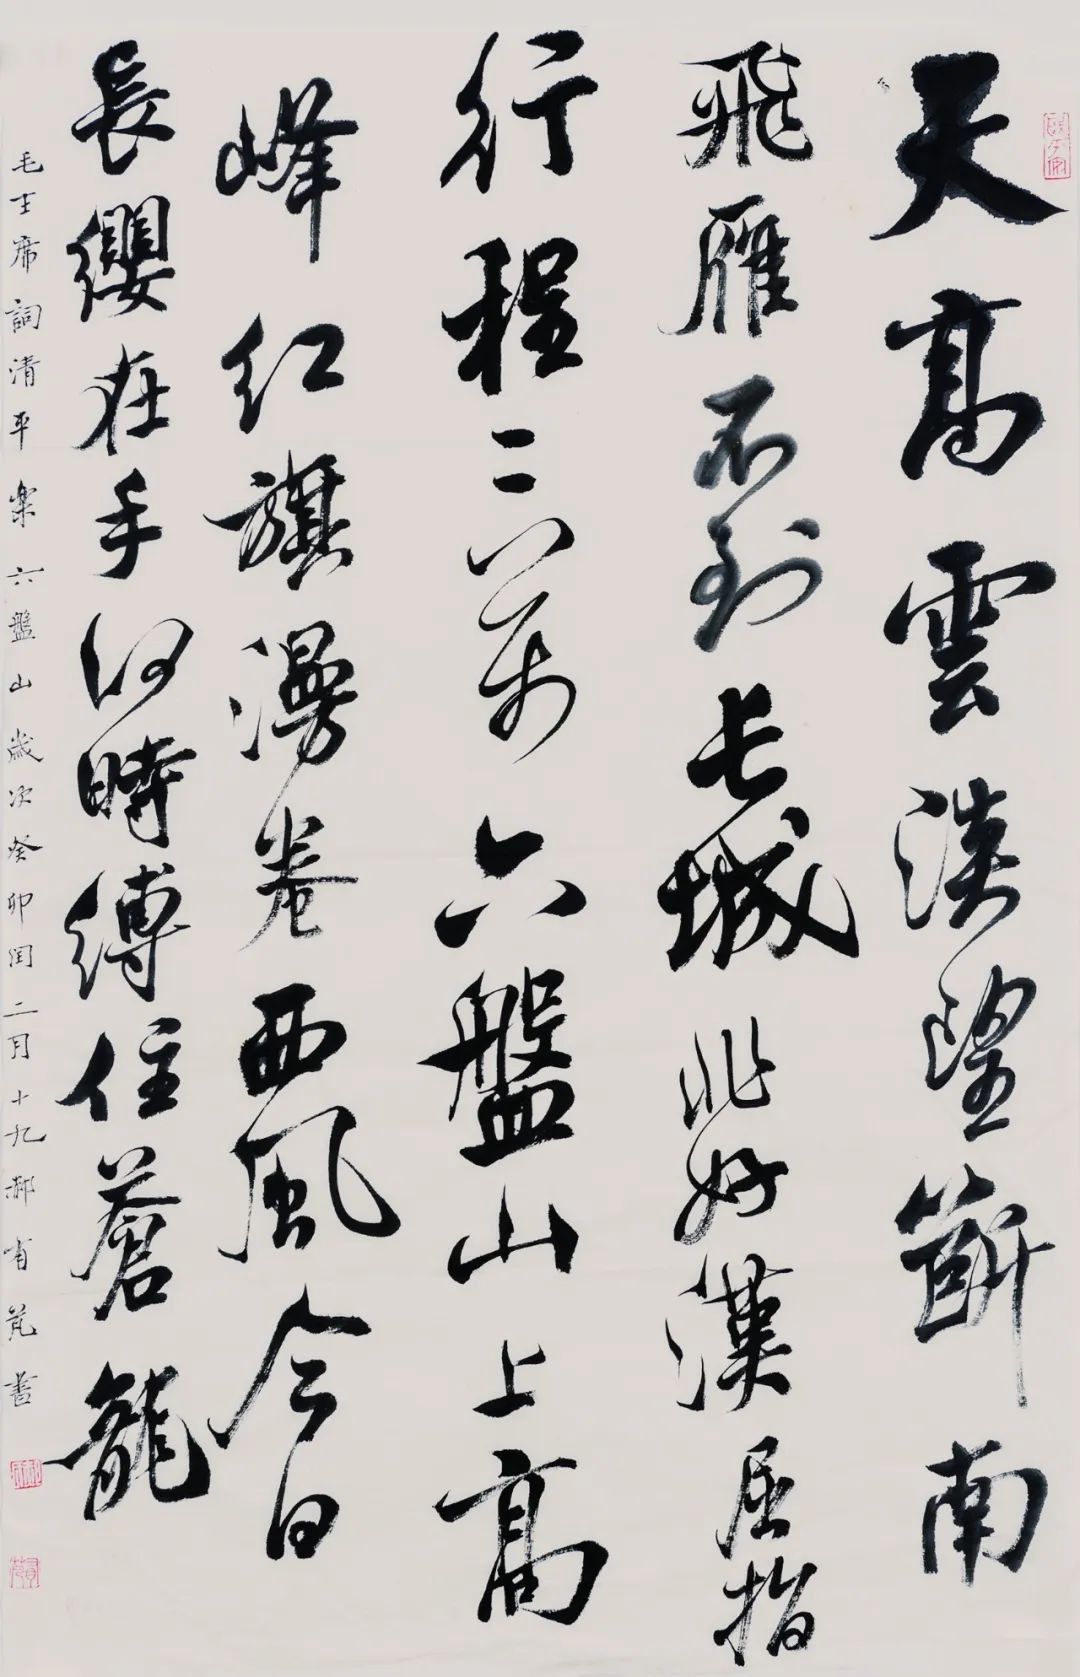 天高雲淡望斷南
飛雁不到长城非好漢屈指
行程二萬六盤山上高
峰红旗漫卷西風今日
長纓在手何時縛住蒼龍
毛主席詞清平楽六盤山歲次癸卯闰二月十九郝有書